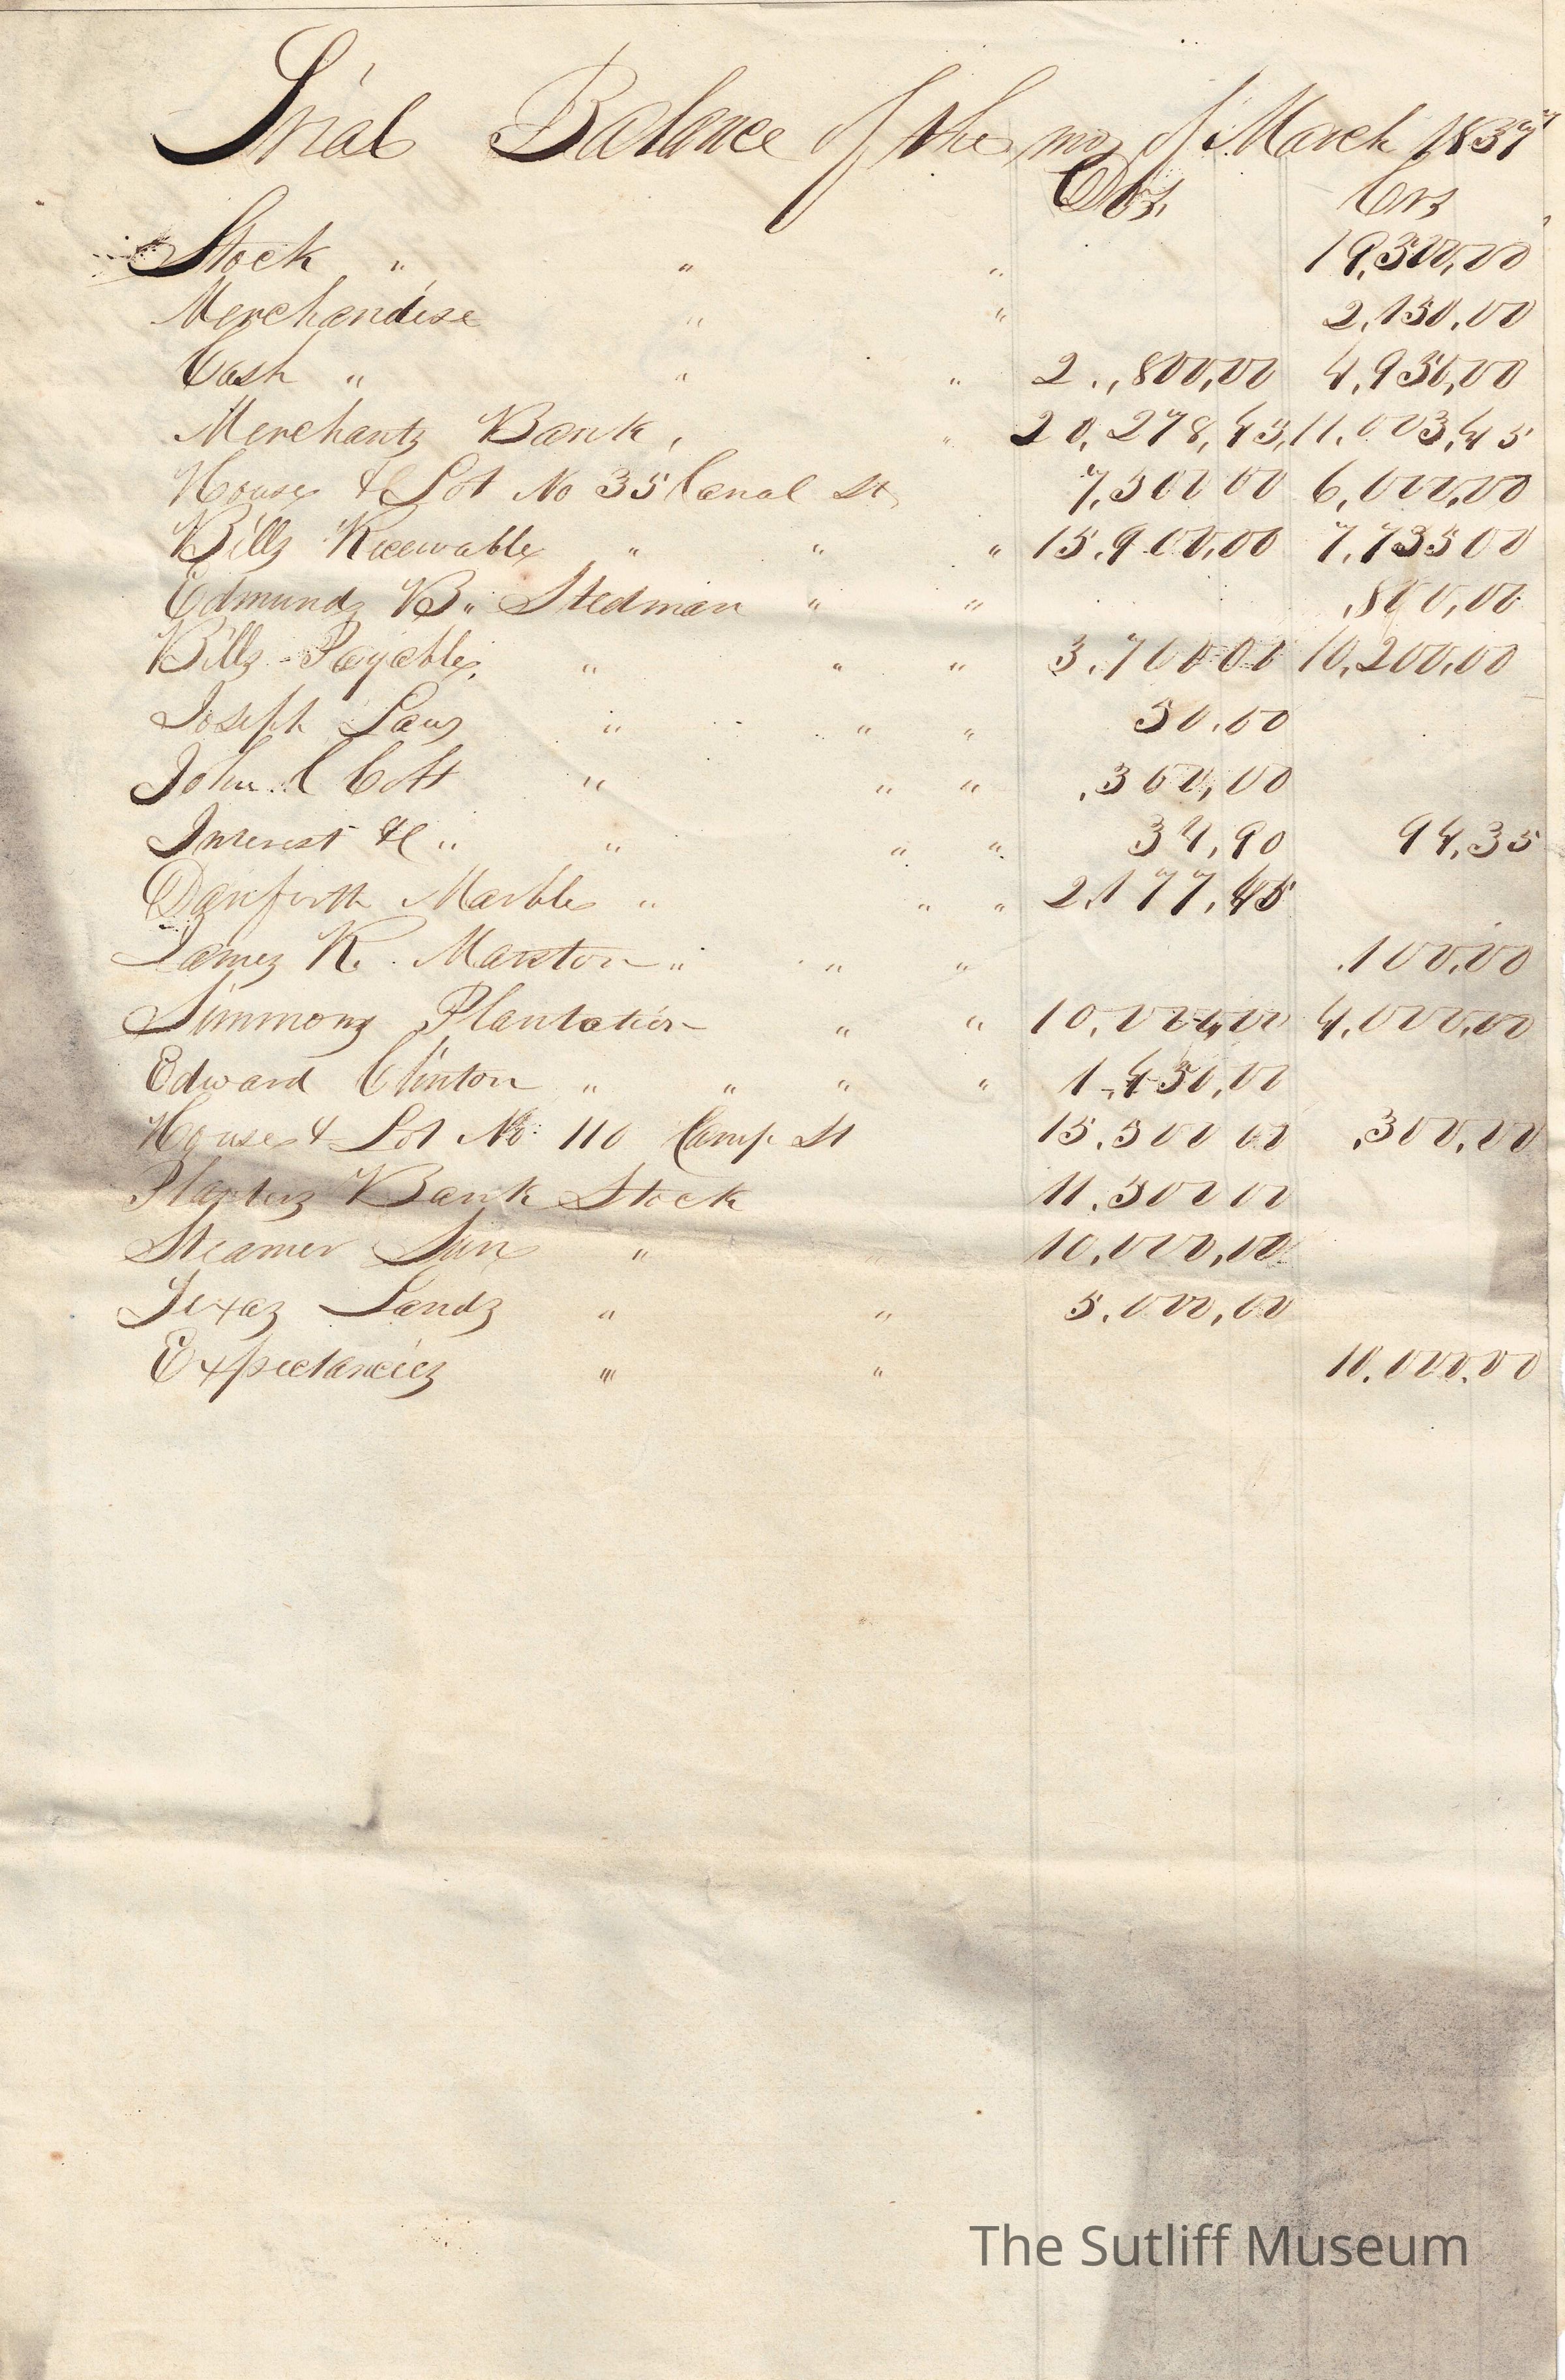 Trial Balance of the mo of March 1837
Drs Crs
Stock " " " 19,500,00
Merchandise " " 2,150,00
Cash " " " 2.,800,00 4,950,00
Merchants Bank, " 20,278,45, 11,003,45
House & Lot No 35 Canal St 7,500 00 6,000,00
Bills Receivable " " " 15,900,00 7,735 00
Edmund B. Stedman " " ,800,00
Bills Payable, " " " 3,700 00 10,200,00
Joseph " " " 50,00
John C Colt " " " ,300,00
Interest &c " " " " 34,90 94,35
Danforth Marble " " " 2,177,45
James K. Marston " " " ,100,00
Simmons Plantation " " 10,000,00 4,000,00
Edward Clinton " " " " 1,450,00
House & Lot No 110 Camp St 15,500 00 ,300,00
Planters Bank Stock 11,500 00
Steamer Sun " 10,000,00
Texas Lands " " 5,000,00
Expectancies " " 10,000,00
The Sutliff Museum